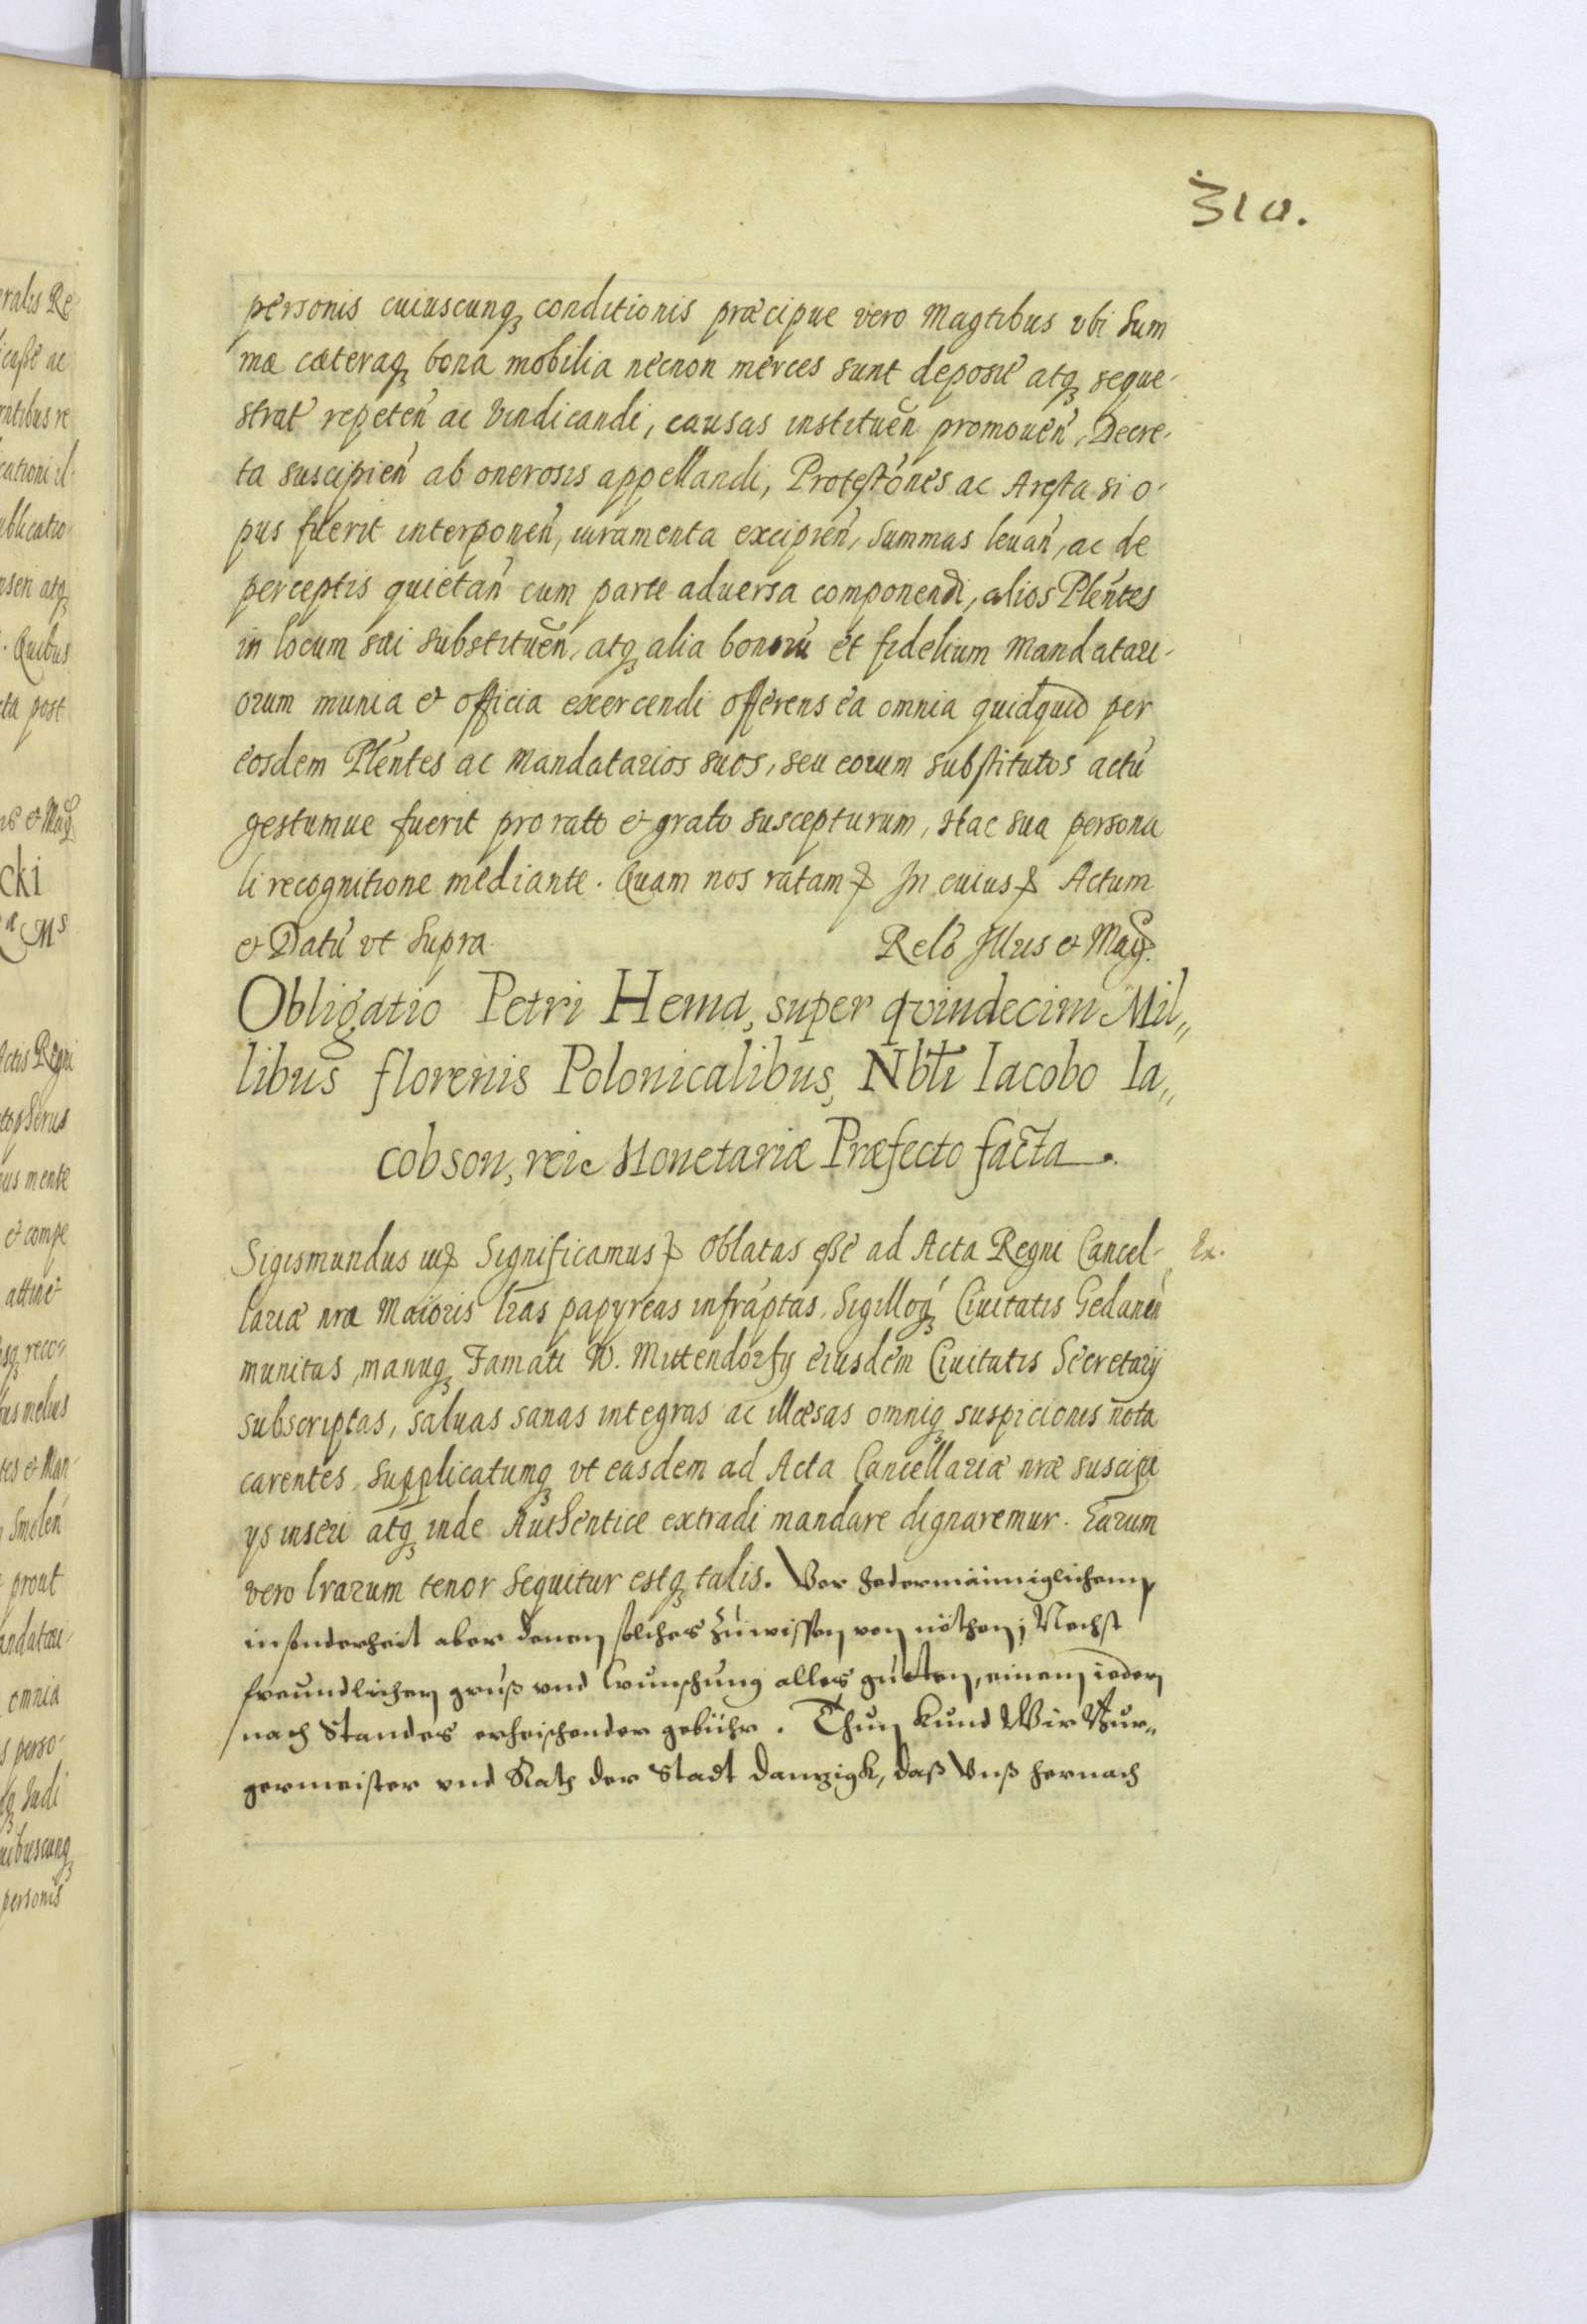 310.
personis cuiuscunq conditionis præcipue vero Magtibus vbi Sum
mæ cæteraq bona mobilia necnon merces sunt deposit atq seque-
strat repeten ac Vindicandi, causas instituen promouen, Decre-
ta suscipien ab onerosis appellandi, Protestones ac Aresta si o-
pus fuerit interponen, iuramenta excipien, Summas leuan, ac de
perceptis quietan cum parte aduersa componendi, alios Plentes
in locum sui substituen, atq alia bonorū et fidelium Mandatari-
orum munia & officia exercendi offerens ea omnia quidquid per
eosdem Plentes ac Mandatarios suos, seu eorum substitutos actū
gestumue fuerit pro rato & grato suscepturum, Hac sua persona
li recognitione mediante. Quam nos ratam In cuius Actum
& Datū vt Supra. Relō Illris & Mag.
Obligatio Petri Hema, super quindecim Mil„
libus florenis Polonicalibus, Nbli Iacobo Ia„
cobson, rei Monetariæ Præfecto facta.
Sigismundus Significamus Oblatas esse ad Acta Regni Cancel- Ex.
lariæ nræ Maioris lras papyreas infraptas, Sigilloq Ciuitatis Gedanen
munitas, manuq Famati W. Mittendorfy eiusdem Ciuitatis Secretarij
subscriptas, saluas sanas integras ac illæsas omniq suspicionis nota
carentes, Supplicatumq vt easdem ad Acta Cancellariæ nræ suscipi
ys inseri atq inde Authentice extradi mandare dignaremur. Earum
vero lrarum tenor sequitur estq talis. Vor Jedermänniglichenn
insonderheit aber denen solches zuwissen von nöthen, Nechst
freundlichen gruß vnd wunschung alles gutten, einem ieden
nach Standes erheischender gebühr. Thun kund Wir Bur„
germeister vnd Rath der Stadt Danzigk, daß Vnß hernach